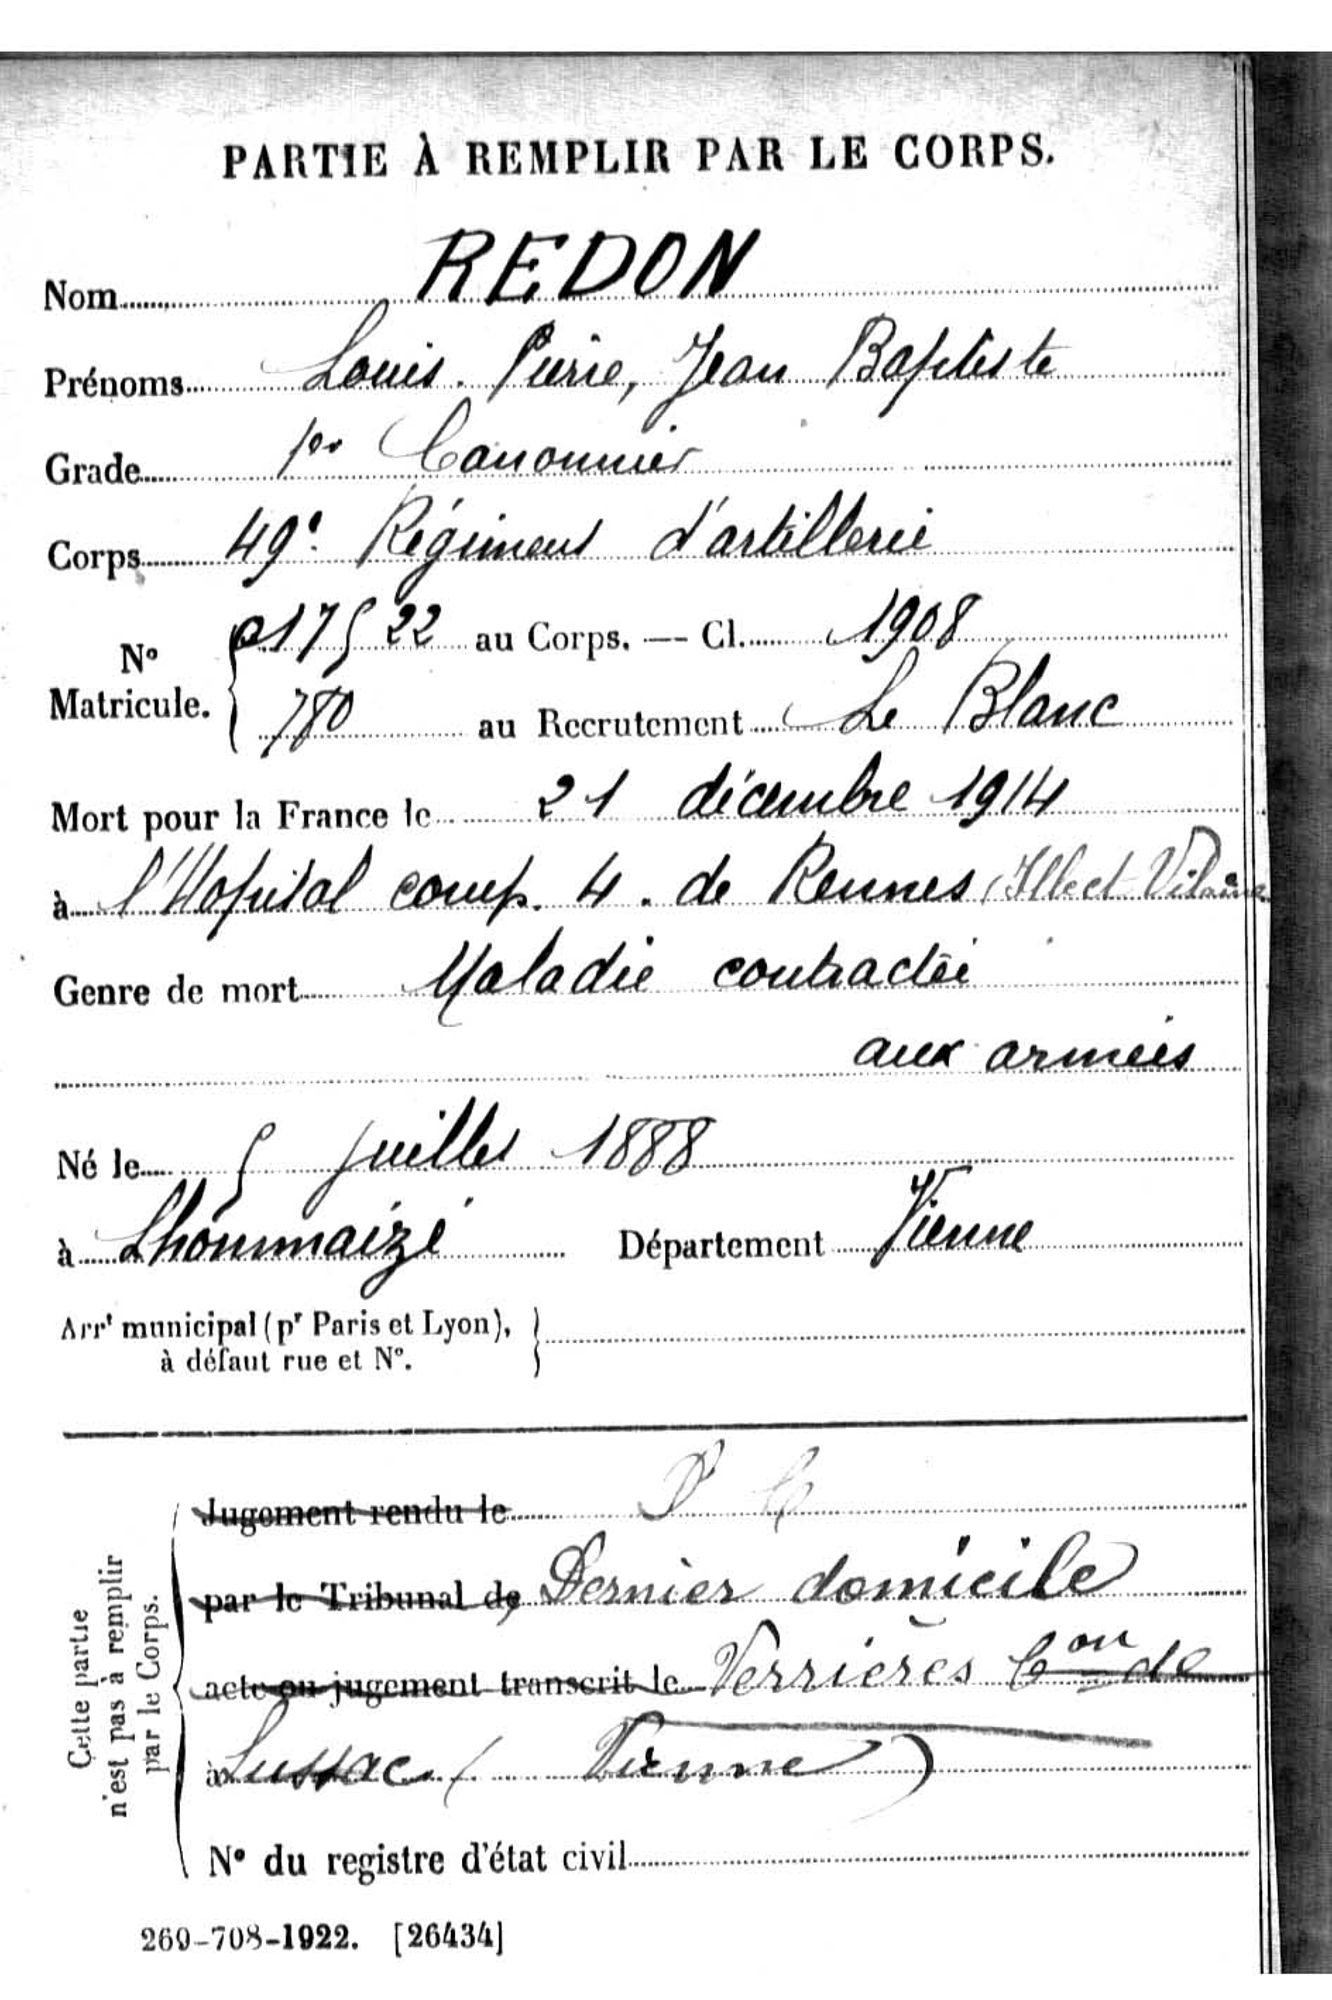 PARTIE À REMPLIR PAR LE CORPS.
Nom REDON
Prénoms Louis. Pierre, Jean Baptiste
Grade 1er Canonnier
Corps 49e Régiment d'artillerie
N° Matricule. { 017522 au Corps. — Cl. 1908
780 au Recrutement Le Blanc
Mort pour la France le 21 décembre 1914
à l'Hopital comp. 4. de Rennes (Ille et Vilaine
Genre de mort Maladie contractée
aux armées
Né le 5 juillet 1888
à Lhommaizé Département Vienne
Arrt municipal (pr Paris et Lyon), }
à défaut rue et N°.
Cette partie
n'est pas à remplir
par le Corps.
Jugement rendu le
par le Tribunal de Dernier domicile
acte ou jugement transcrit le Verrières Con de
à Lussac (Vienne)
N° du registre d'état civil
269-708-1922. [26434]